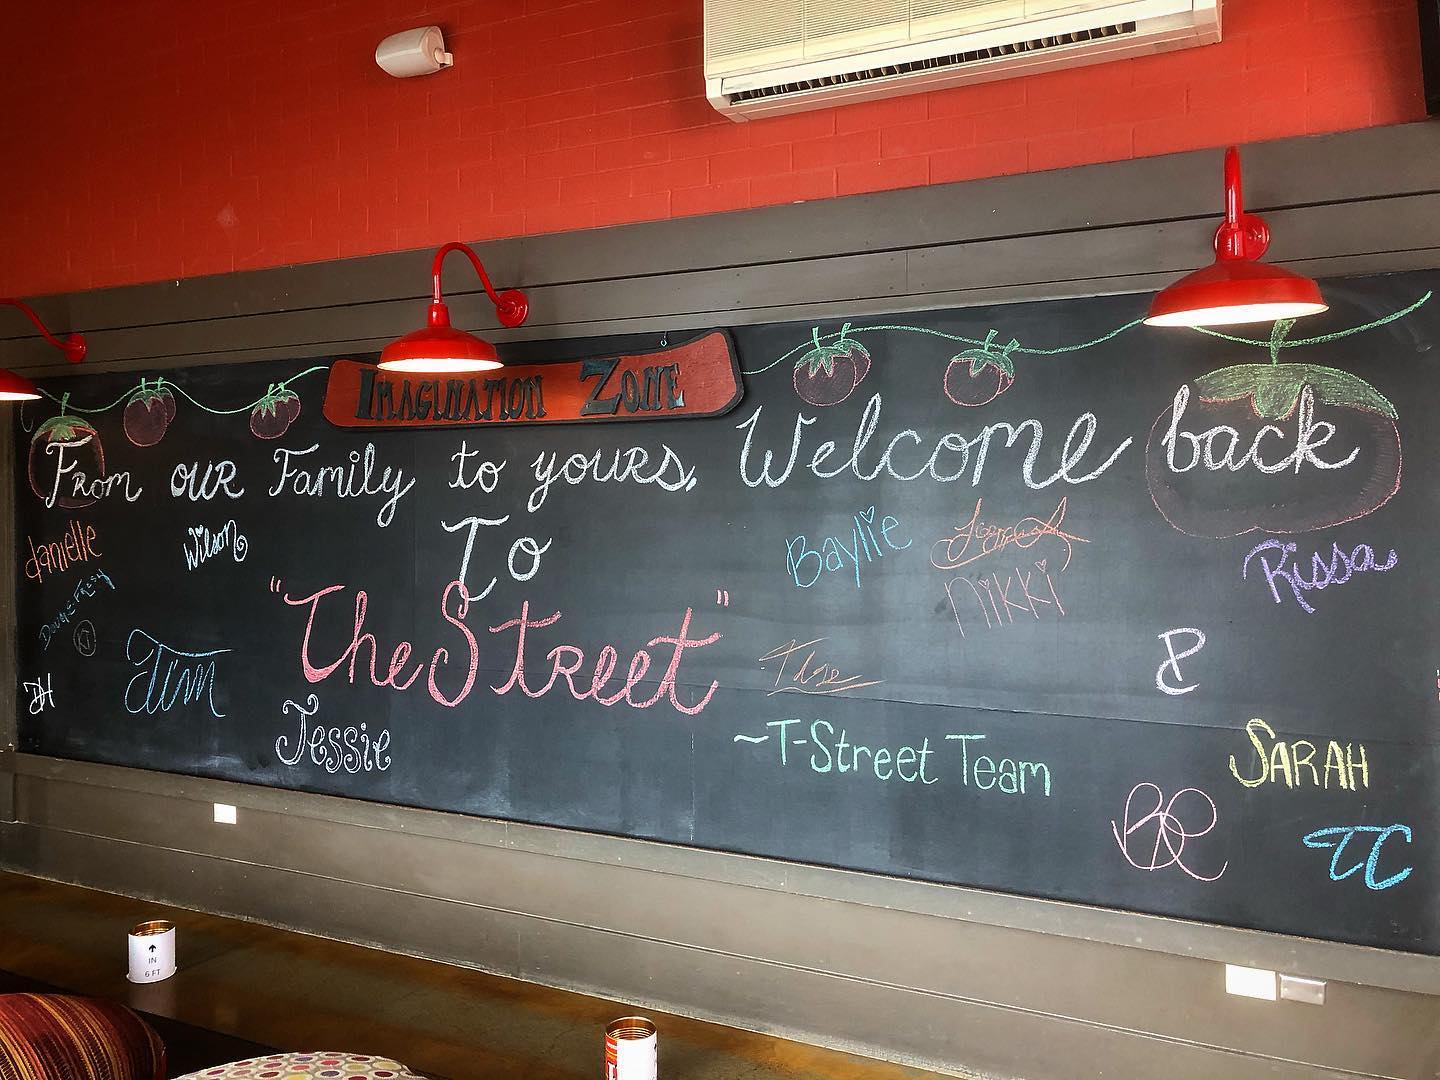 IMAGINATION ZONE
From our Family to yours, Welcome back
To
"The Street"
danielle
Wilson
Baylie
Nikki
Rissa
KJ
DH
Jim
Jessie
~T-Street Team
SARAH
BR
TC
↑
IN
6 FT